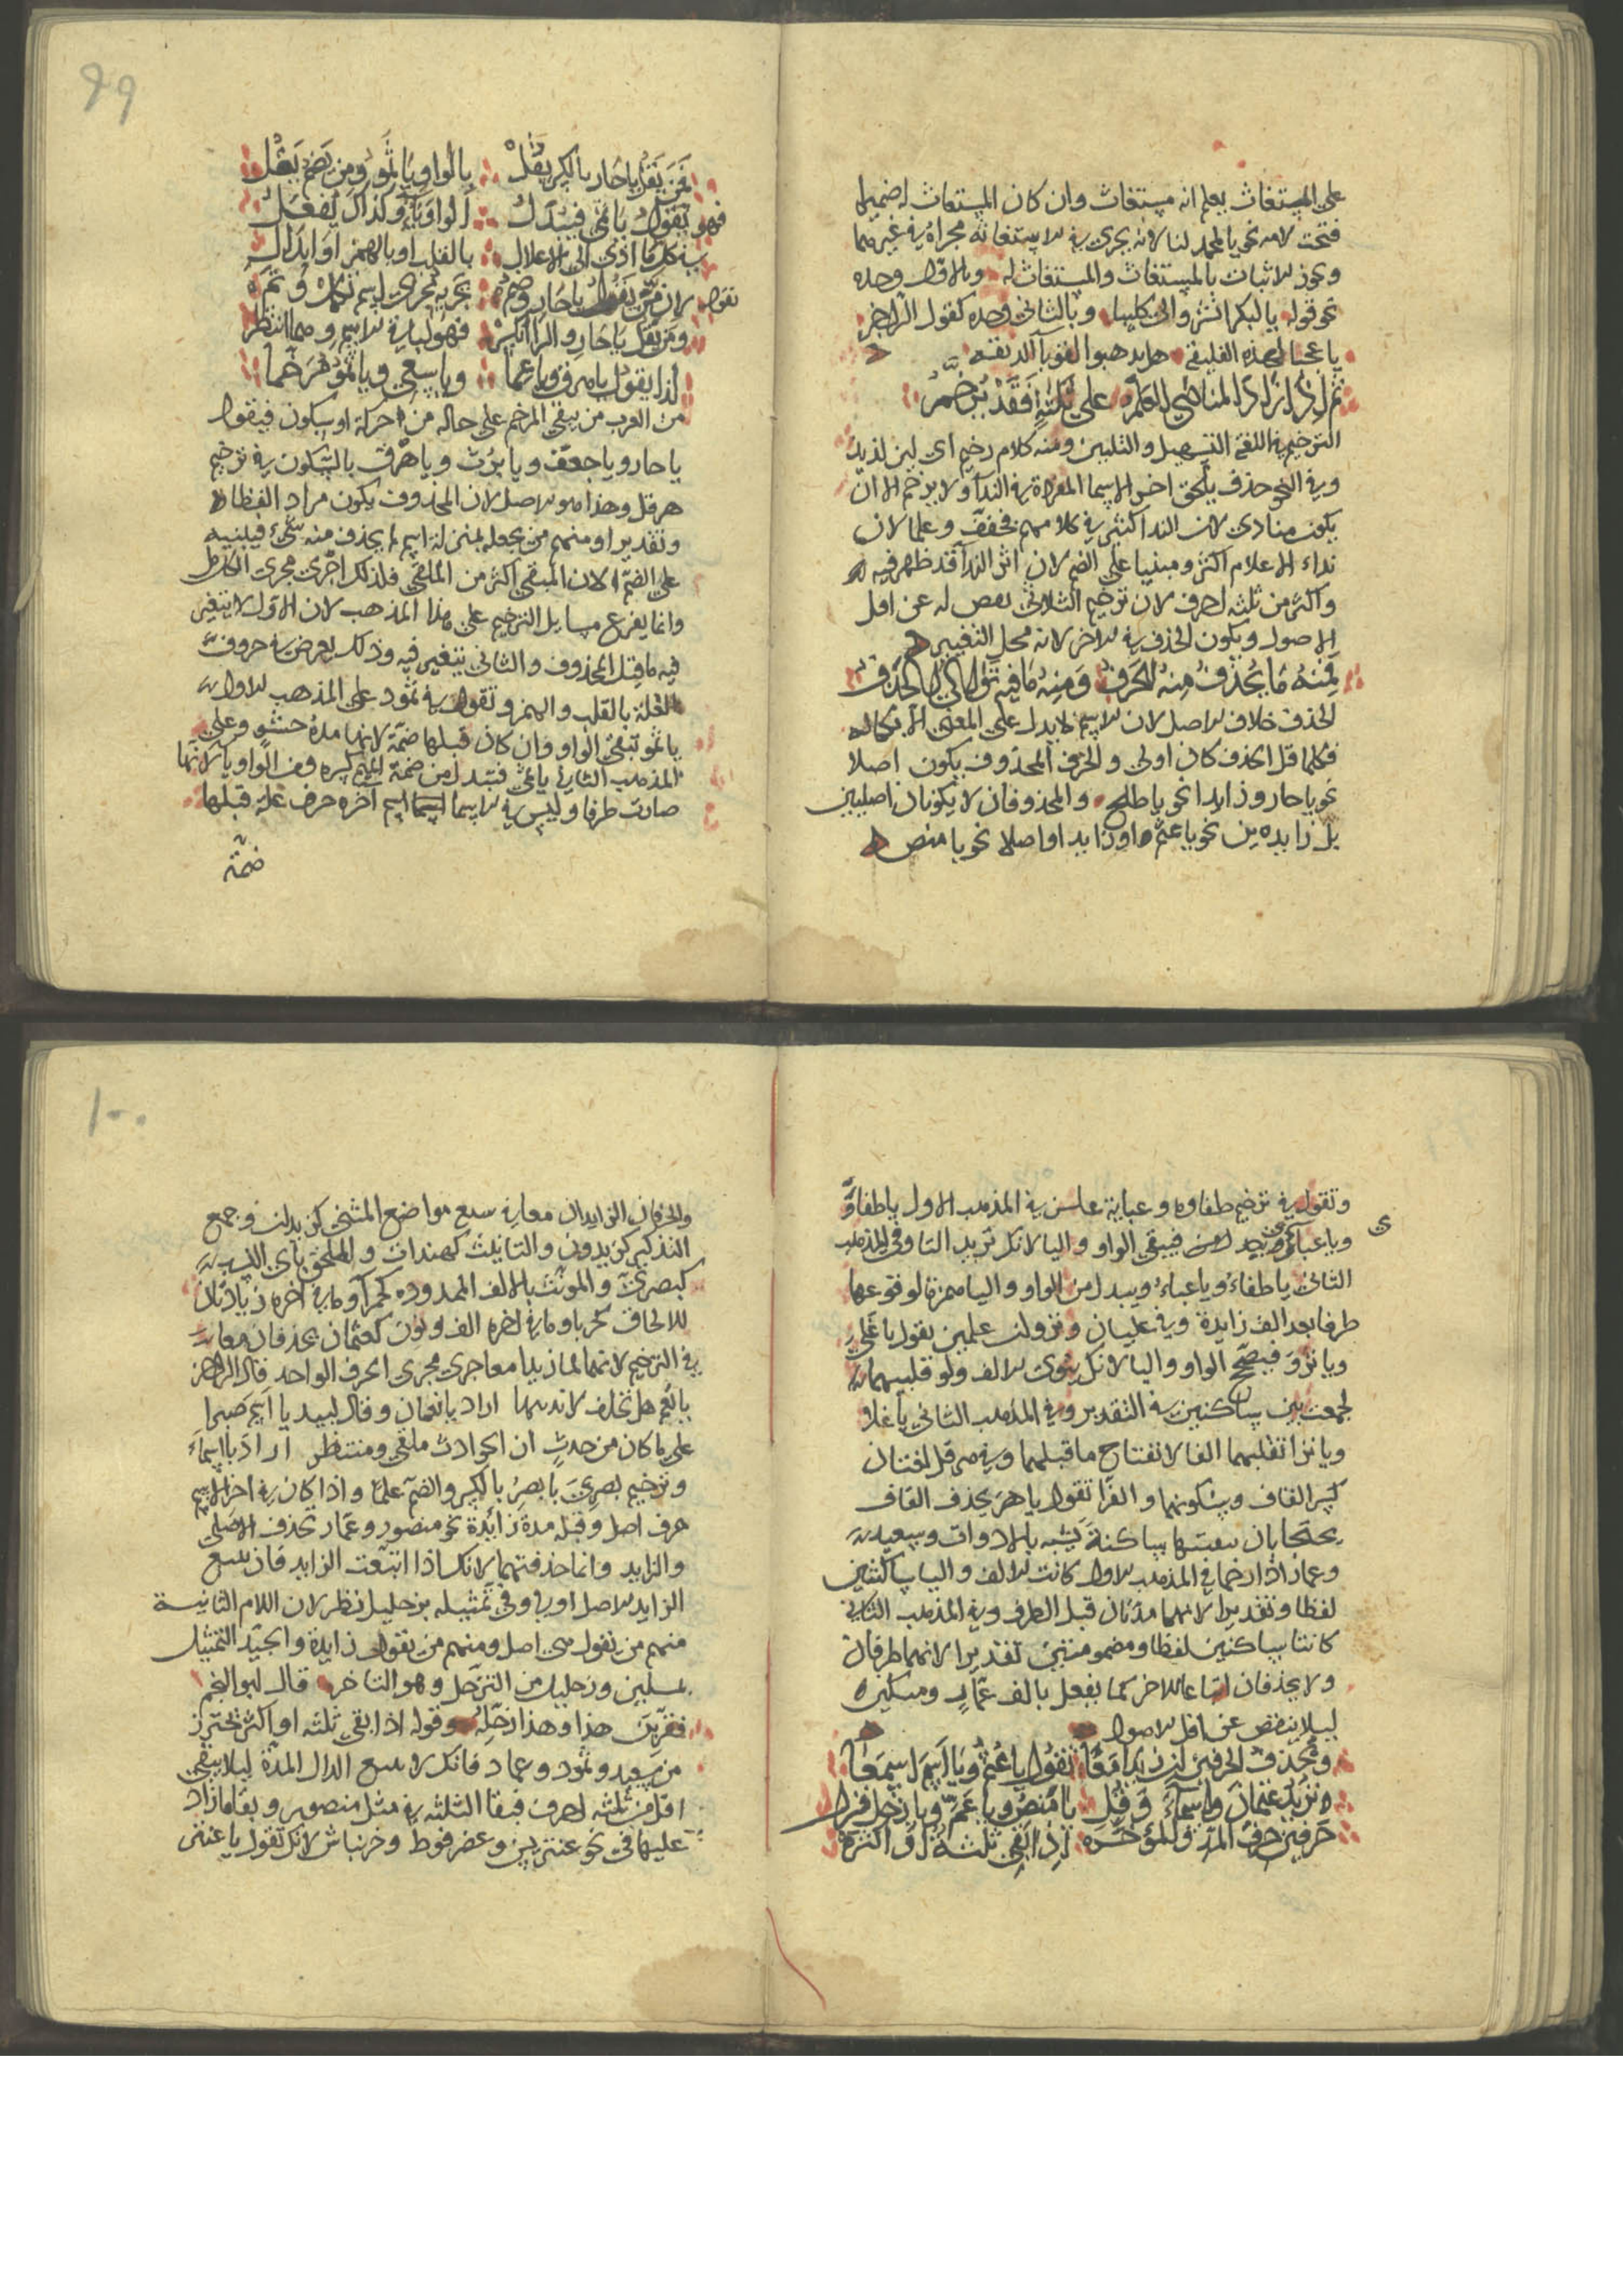 على المستغاث يعلم انه مستغاث وان كان المستغاث له ضميرا
فتحت لامه نحو يا لمحمد لنا لانه يجرى فى الاستغاثة مجراه فى غيرهما
ويجوز الاثبات بالمستغاث والمستغاث له وبالاول وحده
نحو قوله يا لبكر انشروا لى كليبا وبالثانى وحده كقول الراجز
يا عجبا لهذه الفليقه هل يذهبن القوباء الريقه
ثم اذا زاد المنادى العلم على ثلثة فقد يرخم
الترخيم فى اللغة التسهيل والتليين ومنه كلام رخيم اى لين لذيذ
وفى النحو حذف يلحق اخر الاسما المفردة فى الندآ ولا يرخم الا ان
يكون منادى لان الندا كثير فى كلامهم فخفف وعلما لان
نداء الاعلام اكثر ومبنيا على الضم لان اثر الندآ قد ظهر فيه
واكثر من ثلثة احرف لان ترخيم الثلاثى نقص له عن اقل
الاصول ويكون الحذف فى الاخر لانه محل التغيير
فمنه ما يحذف منه الحرف ومنه ما فيه توالى الحذف
الحذف خلاف الاصل لان الاسم لا يدل على المعنى الا بكماله
فكلما قل الحذف كان اولى والحرف المحذوف يكون اصلا
نحو يا حار وزايدا نحو يا طلح والمحذوفان لا يكونان اصليين
بل زايدين نحو يا عثم او زايد او اصلا نحو يا منص
99
فمن يقل يا حار بالكسر يقل بالواو يا ثمو ومن يضم يقل
فهو يقول يا ثمى فيبدل الواو ياء وكذاك يفعل
فى كل ما ادى الى الاعلال بالقلب او بالهمز او ابدال
لان من يقول يا حار وضم يجريه مجرى اسم تكمل وتم
ومن يقل يا حار والرا انكسر فهو لباقى الاسم وما انتظر
لذا يقول يا مرو ويا عما ويا سعى ويا ثمو مرخما
من العرب من يبقى المرخم على حاله من حركة او سكون فيقول
يا حار ويا جعف ويا برث ويا هرق بالسكون فى ترخيم
هرقل وهذا هو الاصل لان المحذوف يكون مراد الفظا
وتقديرا ومنهم من يجعله بمنزلة اسم لم يحذف منه شىء فيبنيه
على الضم لان المبقى اكثر من الملقى فلذلك اجرى مجرى الكامل
وانما يفرع مسايل الترخيم على هذا المذهب لان الاول لا يتغير
فيه ما قبل المحذوف والثانى يتغير فيه وذلك يعرض فى حروف
العلة بالقلب والهمز وتقول فى ثمود على المذهب الاول
يا ثمو تبقى الواو وان كان قبلها ضمة لانها مدة حشو وعلى
المذهب الثانى يا ثمى فتبدل من ضمة الميم كسره ومن الواو يا لانها
صارت طرفا وليس فى الاسما اسم آخره حرف علة قبلها
ضمة
وتقول فى ترخيم طفاوه وعباية على المذهب الاول يا طفاو
ويا عباى فيبقى الواو واليا لانك تريد التا وفى المذهب
الثانى يا طفاء ويا عباء ويبدل من الواو واليا همزة لوقوعها
طرفا بعد الف زايدة وفى غليان ونزوان علمين يقول يا غلى
ويا نزو فيصح الواو واليا لانك ينوى الالف ولو قلبهما
لجمعت بين ساكنين فى التقدير وفى المذهب الثانى يا غلا
ويا نزا تقلبهما الفا لانفتاح ما قبلهما وفى هرقل لغتان
كسر القاف وسكونها والفرا تقول يا هر يحذف القاف
يحتجا بان بقيتها ساكنة يشبه بالادوات وسعيد
وعماد اذا رخما فى المذهب الاول كانت الالف واليا ساكنتين
لفظا وتقديرا لانهما مدتان قبل الطرف وفى المذهب الثانى
كانتا ساكنين لفظا ومضمومتين تقديرا لانهما طرفان
ولا يحذفان اتباعا للاخر كما يفعل بالف عثمان ومسكين
ليلا ينقص عن اقل الاصول
ونحذف الحرفين ان زيدا معا تقول يا عثم ويا اسم اسمعا
تريد عثمان واسماء وقل يا منص ويا عم ويا زحل فزل
حرفين حرف المد والمؤخره اذا بقى ثلثة او اكثره
100
والحرفان الزايدان معا فى سبع مواضع المثنى كزيدان وجمع
التذكير كزيدون والتانيث كهندات والملحق بآى النسب
كبصرى والمونث بالالف الممدوده كحمرآ وما فى آخره زيادتان
للالحاق كحربا وما فى اخره الف ونون كعثمان يحذفان معا
فى الترخيم لانهما لما زيدا معا جرى مجرى الحرف الواحد قال الراجز
يا نعم هل تحلف لا تدينها اراد يا نعمان وقال لبيد يا اسم صبرا
على ما كان من حدث ان الحوادث ملقى ومنتظر اراد يا اسماء
وترخيم بصرى يا بصر بالكسر والضم علما واذا كان فى اخر الاسم
حرف اصل وقبله مدة زائدة نحو منصور وعمار تحذف الاصلى
والزايد وانما حذفتهما لانك اذا اتبعت الزايد فان تتبع
الزايد الاصل اولى وفى تمثيله بزحليل نظر لان اللام الثانية
منهم من تقول هى اصل ومنهم من تقول زايدة والجيد التمثيل
بمسلمين وزحليل من التزحل وهو التاخر قال ابو النجم
فقربن هذا وهذا زحله وقوله اذا بقى ثلثه او اكثر تحترز
من سعيد وثمود وعماد فانك لا تتبع الدال المدة ليلا يبقى
اقل من ثلثه احرف فبقا الثلثه فى مثل منصور وبقا ما زاد
عليها فى نحو عنتريس وعضرفوط وخرنباش لانك تقول يا عنتى